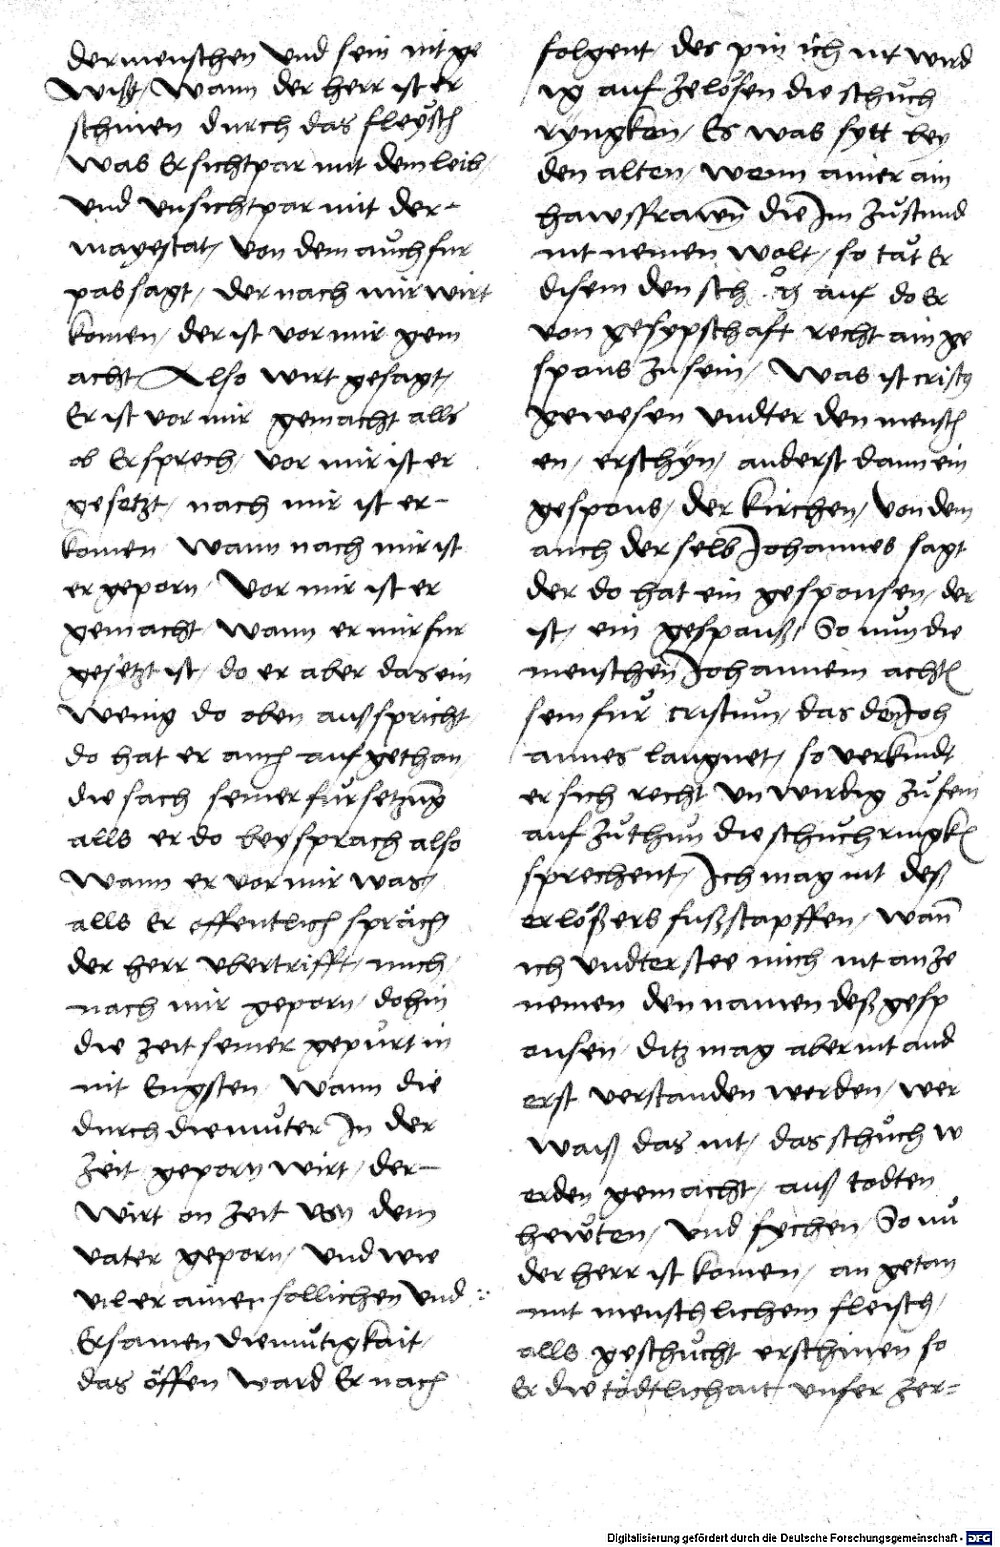 der menschen Vnd sein nit ge
Wiß, Wann der herr ist er
schinen durch das fleysch
was Er sichtpar mit dem leib,
vnd vnsichtpar mit der-
mayestat, Von dem auch fur
pas sagt, der nach mir wirt
komen, der ist vor mir gem
acht, Also wirt gesagt,
Er ist vor mir gemacht alls
ob Er sprech, Vor mir ist er
gesetzt, nach mir ist er-
komen, Wann nach mir ist
er geporn, Vor mir ist er
gemacht, Wann er mir fur
gesetzt ist, do er aber das ein
Wenig do oben außspricht,
do hat er auch auf gethan,
die sach seiner fürsetzung
alls er do beysprach also
Wann er vor mir was,
alls Er offentlich spräch,
der herr vbertrifft, mich,
nach mir geporn, dohin
die zeit seiner gepurt in
nit Engsten, Wann die
durch die muter In der
Zeit geporn wirt, der-
Wirt on Zeit von dem
vater geporn, Vnd wie
vil er ainer sollichen Vnd
Ersamen diemütigkait,
das öffen ward Er nach
folgent, des pin ich nit wird
ig auf Zelösen die schuch
ryngken, Es was sytt bey
den alten, wenn ainer ain
hawsffrawn die Im Zustund
nit nemen wolt, so tät Er
disem den sch auf do Er
von gesypschafft recht ain ge
spons Zu sein, Was ist cristus
gewesen vndter den mensch
en, erschyn, anderst dann ein
gespons, der kirchen, Von dem
auch der selb Johannes sagt
der do hat ein gesponsen, der
ist, ein gespons, So nun die
menschen Johannem achten
sein für cristum, das denn Joh
annes laugnet, so verkindt
er sich recht vnwirdig Zu sein
auf Zuthun die schuch ringken
sprechent, Ich mag nit deß
erlößers fußstapffen, wann
ich vndterstee mich nit an Ze
nemen den namen deß gesp
onsen, ditz mag aber nit and
erst verstanden werden, wer
waiß das nit, das schuch w
erden gemacht, auß todten
hewten, Vnd fychen, So nu
der herr ist komen, an getan
mit menschlichem fleisch,
alls geschucht erschinen so
Er die tödtlichait vnser Zer-
Digitalisierung gefördert durch die Deutsche Forschungsgemeinschaft - DFG